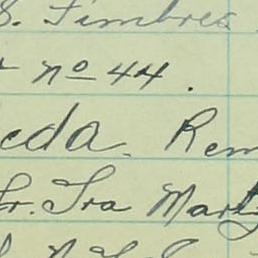 S. Timbres
nº 44.
eda. Rem
Dr. Ira Marty